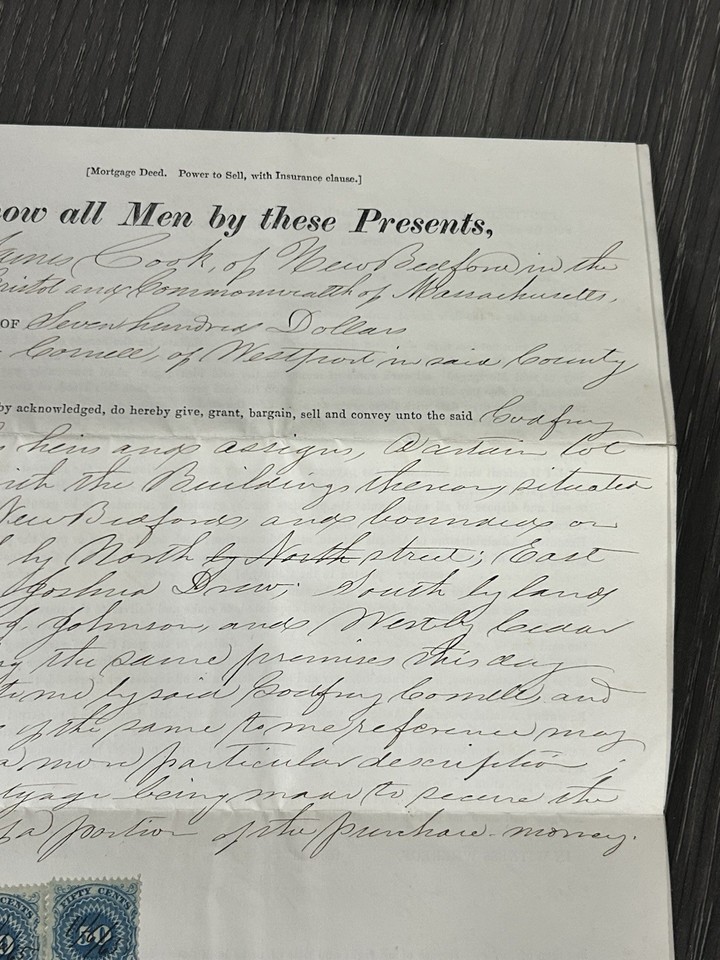 [Mortgage Deed. Power to Sell, with Insurance clause.]
ow all Men by these Presents,
ames Cook, of New Bedford in the
ristol and Commonwealth of Massachusetts,
OF Seven hundred Dollars
Cornell, of Westport in said County
by acknowledged, do hereby give, grant, bargain, sell and convey unto the said Godfrey
heirs and assigns, a certain lot
ith the Buildings thereon, situated
New Bedford, and bounded on
by North by North street; East
Joshua Drew; South by land
Johnson, and West by Cedar
the same premises this day
to me by said Godfrey Cornell, and
of the same to me reference may
a more particular description;
tgage being made to secure the
of a portion of the purchase-money.
CENTS
FIFTY CENTS
50